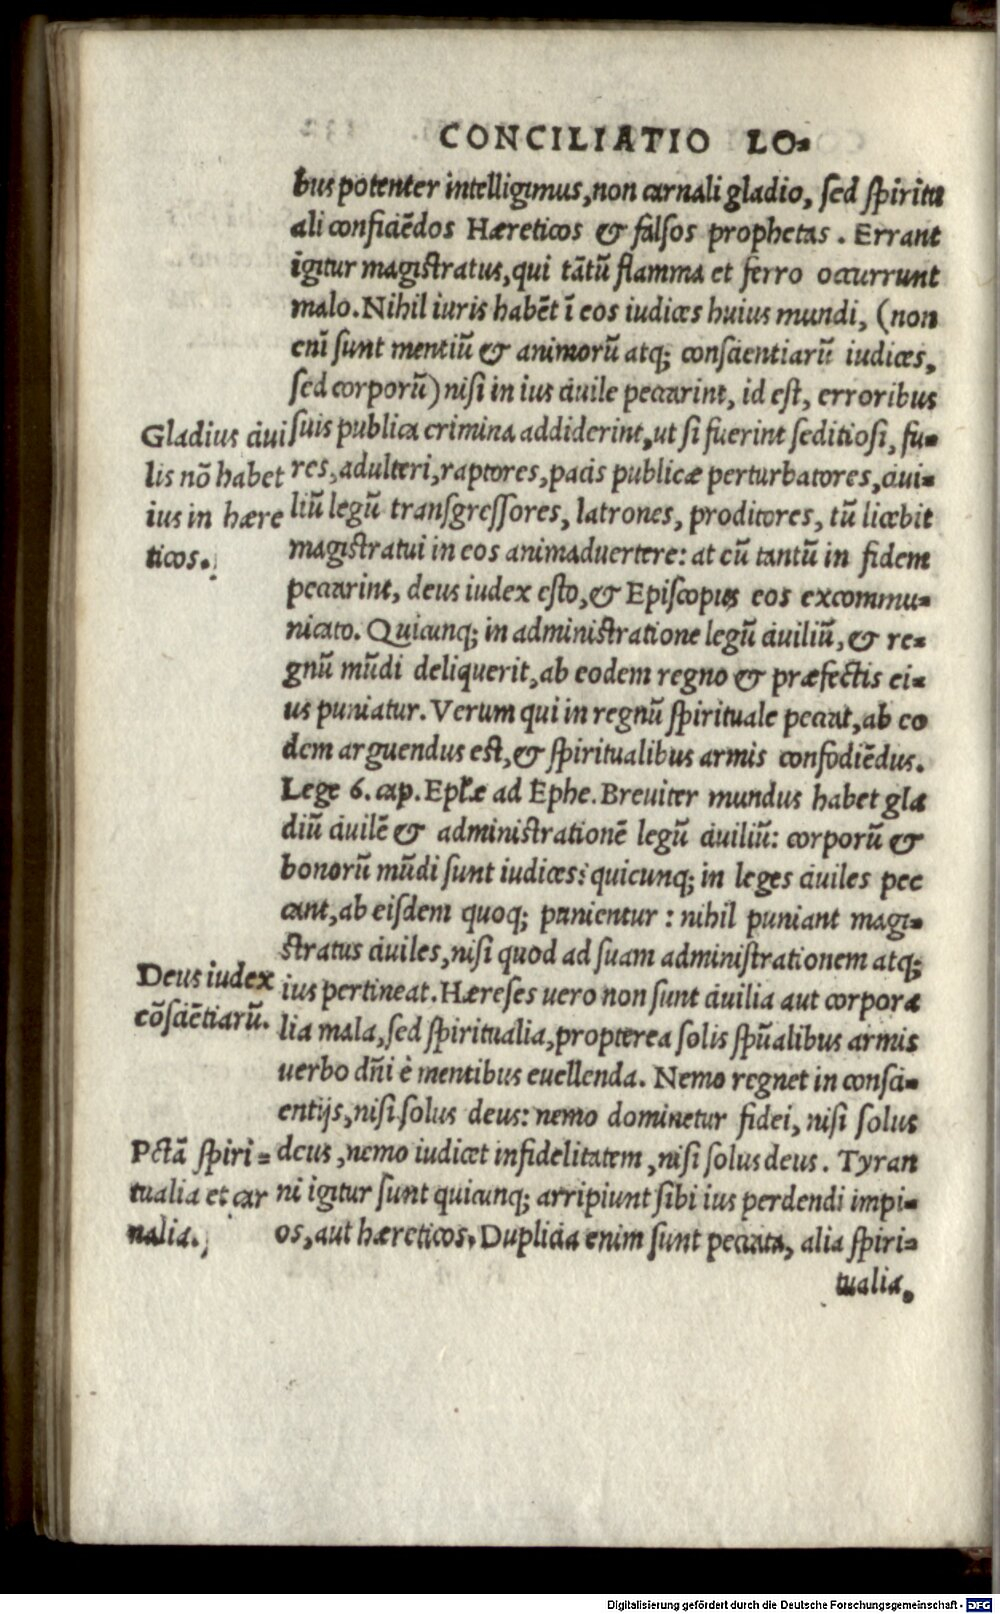 CONCILIATIO LO⸗
bus potenter intelligimus, non carnali gladio, sed spiritu
ali conficiẽdos Hæreticos & falsos prophetas. Errant
igitur magistratus, qui tãtũ flamma et ferro occurrunt
malo. Nihil iuris habẽt ĩ eos iudices huius mundi, (non
eni sunt mentiũ & animorũ atq; conscientiarũ iudices,
sed corporũ) nisi in ius ciuile peccarint, id est, erroribus
suis publica crimina addiderint, ut si fuerint seditiosi, fu⸗
res, adulteri, raptores, pacis publicæ perturbatores, ciui⸗
liũ legũ transgressores, latrones, proditores, tũ licebit
magistratui in eos animaduertere: at cũ tantũ in fidem
peccarint, deus iudex esto, & Episcopus eos excommu⸗
nicato. Quicunq; in administratione legũ ciuiliũ, & re⸗
gnũ mũdi deliquerit, ab eodem regno & præfectis ei⸗
us puniatur. Verum qui in regnũ spirituale peccat, ab eo
dem arguendus est, & spiritualibus armis confodiẽdus.
Lege 6. cap. Eplæ ad Ephe. Breuiter mundus habet gla
diũ ciuilẽ & administrationẽ legũ ciuiliũ: corporũ &
bonorũ mũdi sunt iudices: quicunq; in leges ciuiles pec
cant, ab eisdem quoq; punientur: nihil puniant magi⸗
stratus ciuiles, nisi quod ad suam administrationem atq;
ius pertineat. Hæreses uero non sunt ciuilia aut corpora
lia mala, sed spiritualia, propterea solis spũalibus armis
uerbo dñi è mentibus euellenda. Nemo regnet in consci⸗
entijs, nisi solus deus: nemo dominetur fidei, nisi solus
deus, nemo iudicet infidelitatem, nisi solus deus. Tyran
ni igitur sunt quicunq; arripiunt sibi ius perdendi impi⸗
os, aut hæreticos. Duplicia enim sunt peccata, alia spiri⸗
tualia,
Gladius ciui
lis nõ habet
ius in hære
ticos.
Deus iudex
cõsciẽtiarũ.
Pctã spiri⸗
tualia et car
nalia.
Digitalisierung gefördert durch die Deutsche Forschungsgemeinschaft - DFG